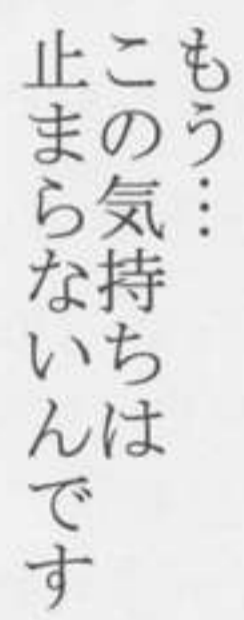 もう…
この気持ちは
止まらないんです